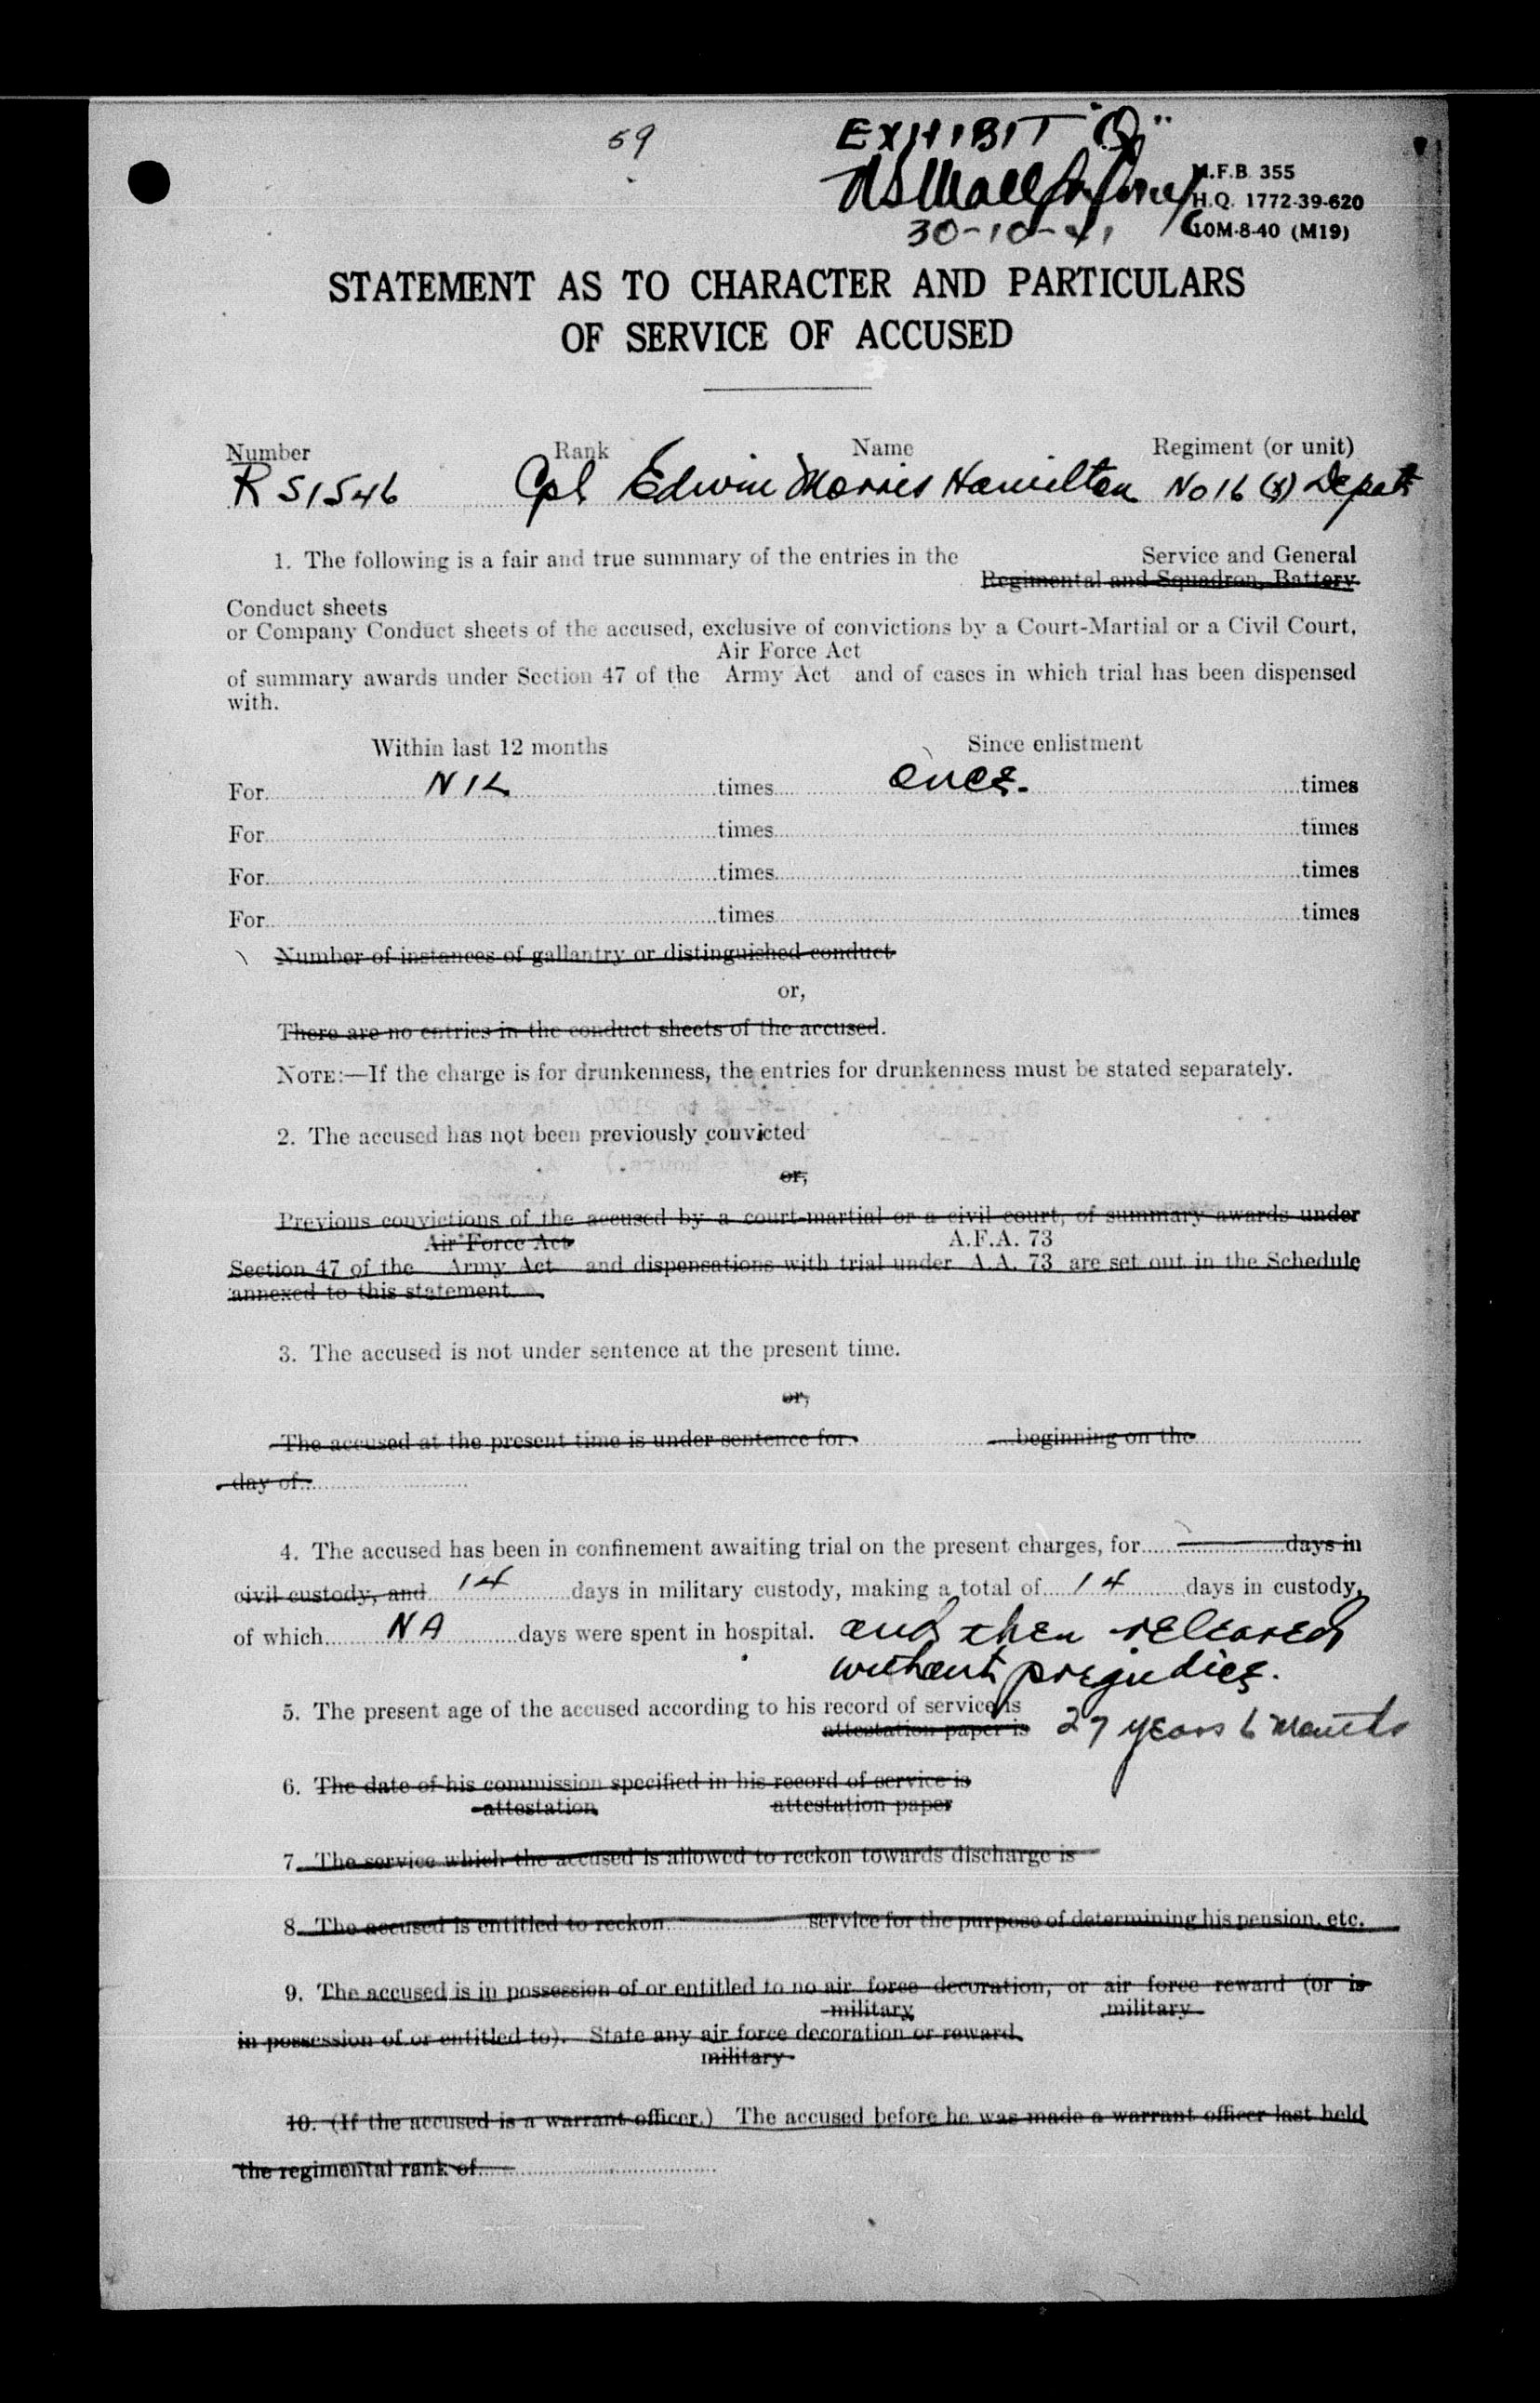 59
EXHIBIT "Q"
M.F.B. 355
H.Q. 1772-39-620
30-10-41
10M-8-40 (M19)
STATEMENT AS TO CHARACTER AND PARTICULARS
OF SERVICE OF ACCUSED
Number Rank Name Regiment (or unit)
R 51546 Cpl Edwin Morris Hamilton No 16 (X) Depot
1. The following is a fair and true summary of the entries in the Service and General
Regimental and Squadron, Battery
Conduct sheets
or Company Conduct sheets of the accused, exclusive of convictions by a Court-Martial or a Civil Court,
Air Force Act
of summary awards under Section 47 of the Army Act and of cases in which trial has been dispensed
with.
Within last 12 months Since enlistment
For NIL times once. times
For times times
For times times
For times times
Number of instances of gallantry or distinguished conduct
or,
There are no entries in the conduct sheets of the accused.
NOTE:—If the charge is for drunkenness, the entries for drunkenness must be stated separately.
2. The accused has not been previously convicted
or,
Previous convictions of the accused by a court-martial or a civil court, of summary awards under
Air Force Act A.F.A. 73
Section 47 of the Army Act and dispensations with trial under A.A. 73 are set out in the Schedule
annexed to this statement.
3. The accused is not under sentence at the present time.
or,
The accused at the present time is under sentence for beginning on the
day of
4. The accused has been in confinement awaiting trial on the present charges, for days in
civil custody, and 14 days in military custody, making a total of 14 days in custody,
of which NA days were spent in hospital. and then released
without prejudice.
5. The present age of the accused according to his record of service is
attestation paper is 27 years 6 Months
6. The date of his commission specified in his record of service is
attestation attestation paper
7. The service which the accused is allowed to reckon towards discharge is
8. The accused is entitled to reckon service for the purpose of determining his pension, etc.
9. The accused is in possession of or entitled to no air force decoration, or air force reward (or is
military military
in possession of or entitled to). State any air force decoration or reward.
military
10. (If the accused is a warrant officer.) The accused before he was made a warrant officer last held
the regimental rank of